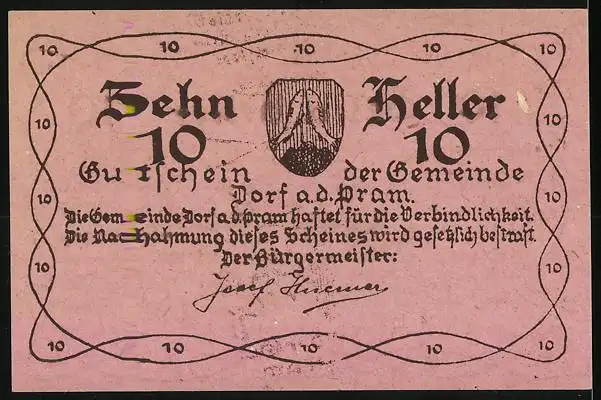 10 10 10 10 10
Zehn Heller
10 10
10 10
Gutschein der Gemeinde
Dorf a.d. Pram.
10 10
Die Gemeinde Dorf a.d. Pram haftet für die Verbindlichkeit.
Die Nachahmung dieses Scheines wird gesetzlich bestraft.
Der Bürgermeister:
10 10
Josef
10 10 10 10 10